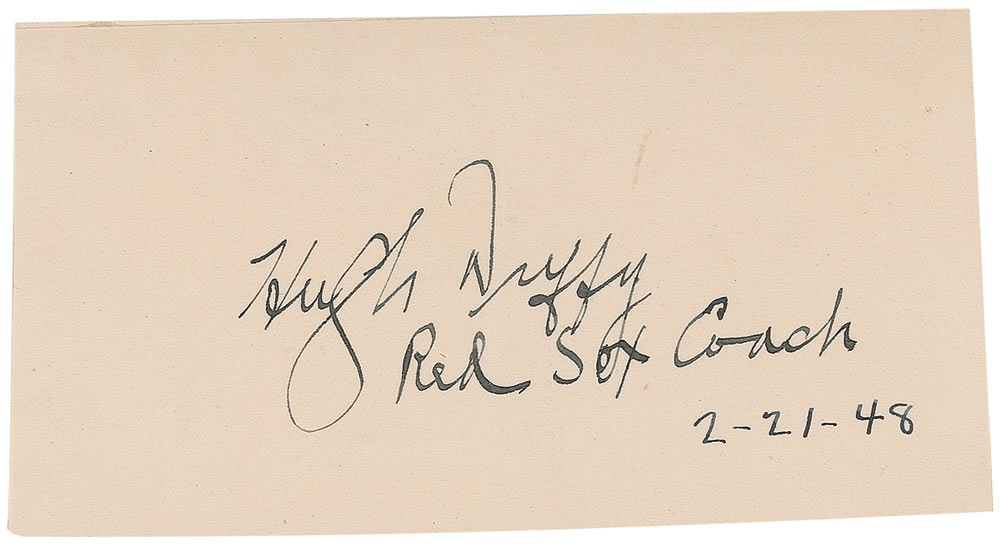 Hugh Duffy
Red Sox Coach
2-21-48